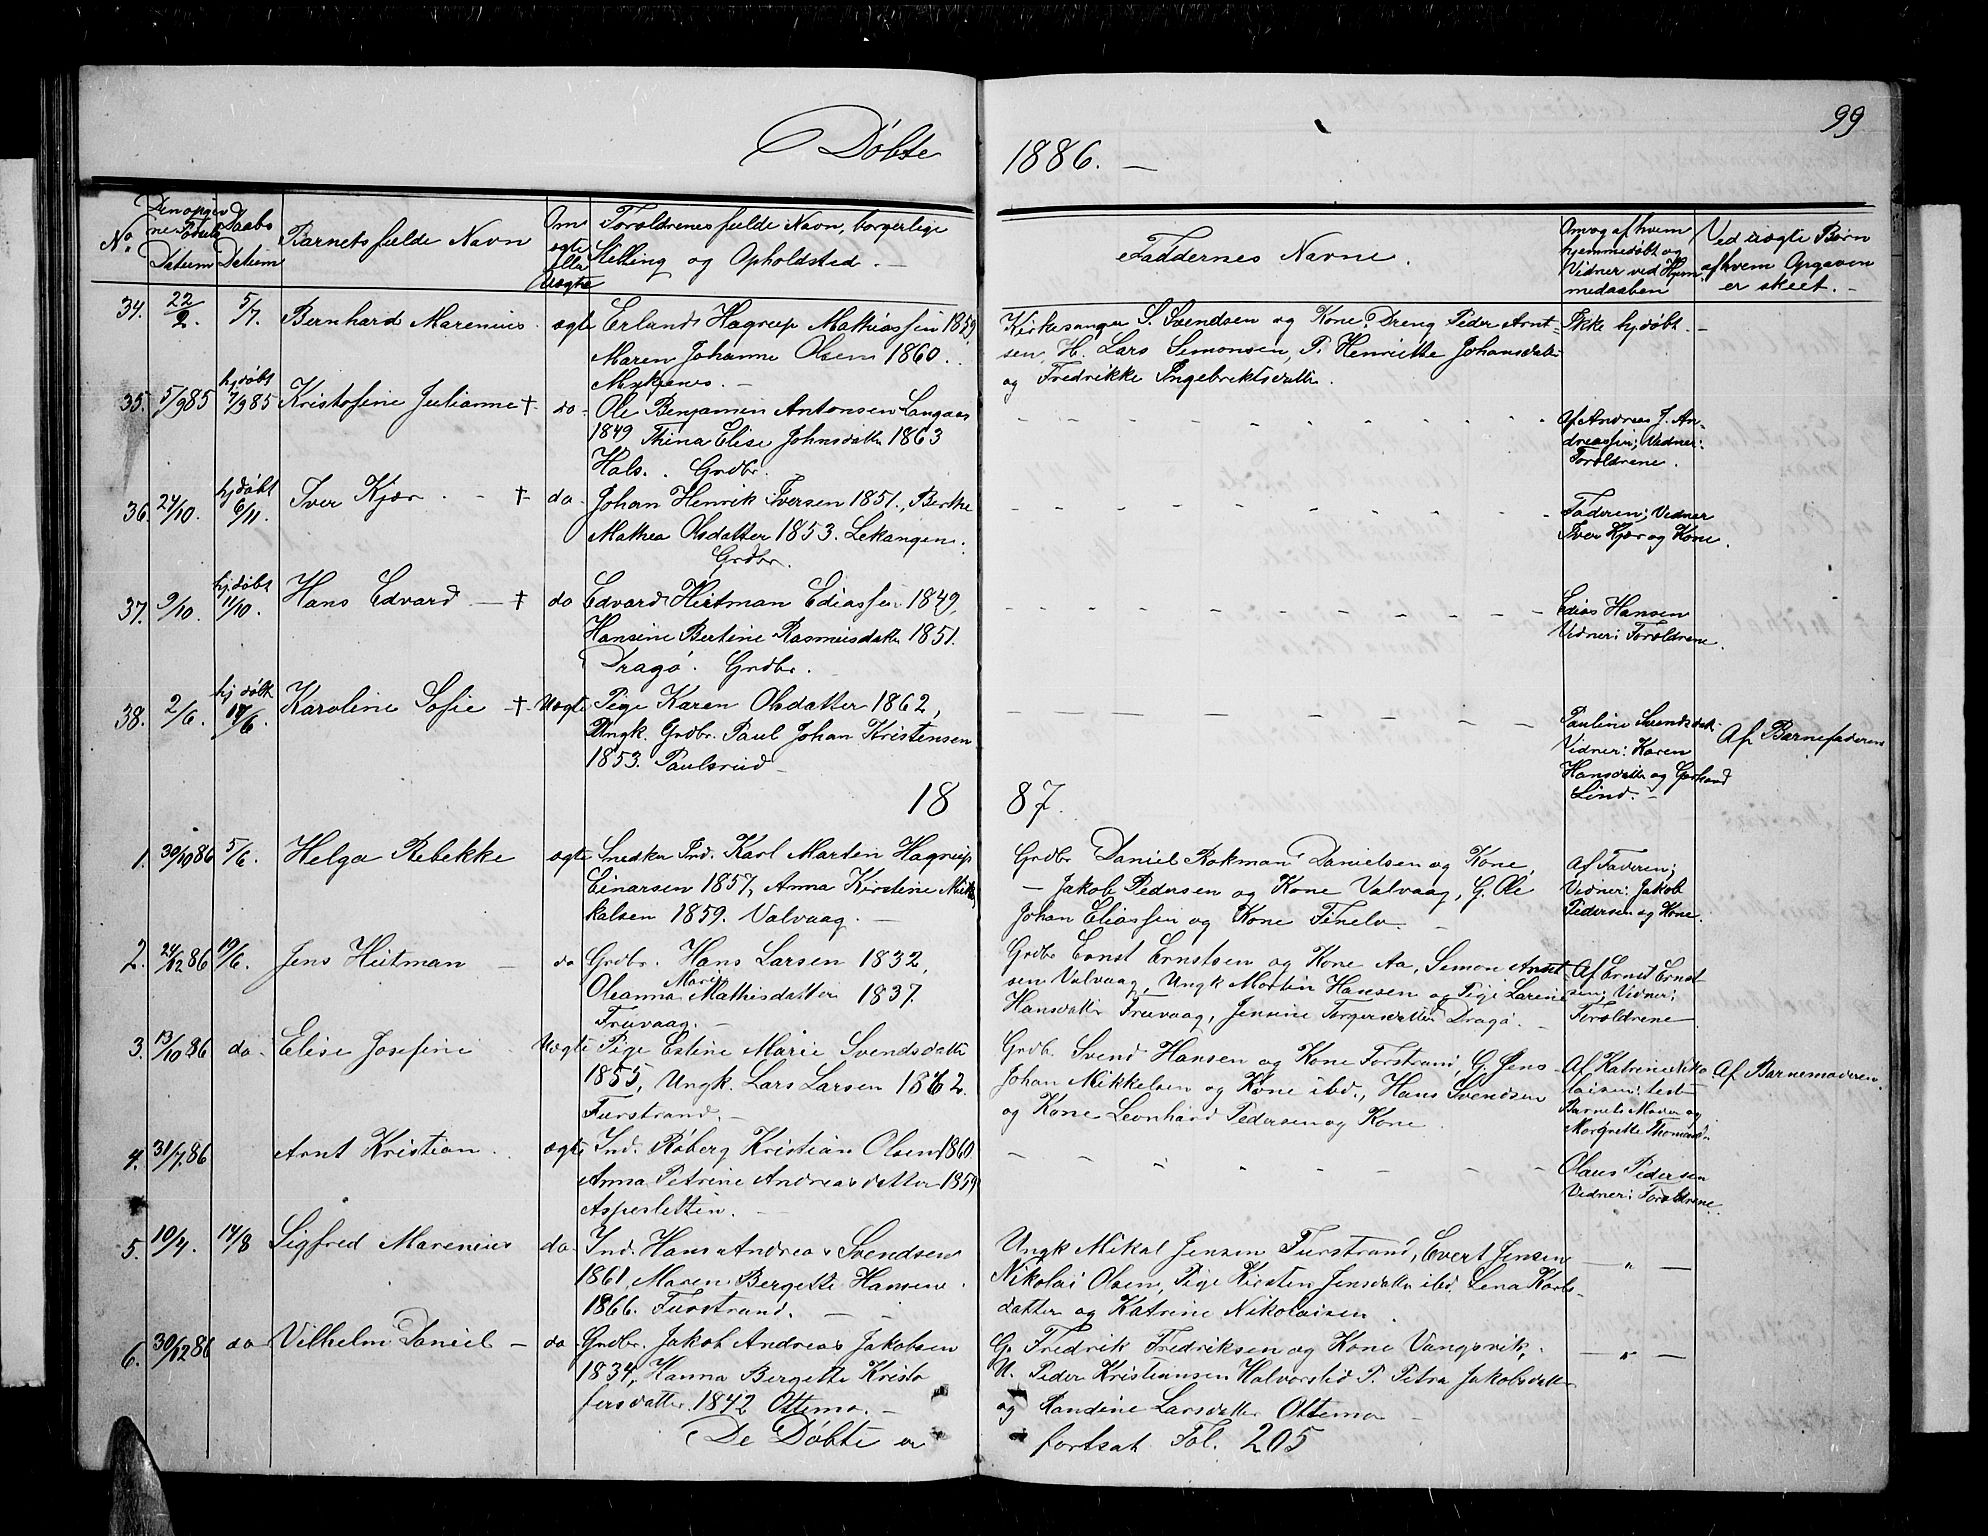 99
Døbte 1886. —
No. Den opgivne Fødsels Datum
Daabs Datum
Barnets fulde Navn
Om ægte eller Uægte
Forældrenes fulde Navn, borgerlige Stilling og Opholdsted. —
Faddernes Navne.
Om og af hvem hjemmedøbt og Vidner ved Hjemmedaaben
Ved uægte Børn af hvem Opgaven er skeet. —
34. 22/2. 5/7. Bernhard Marenius. ægte Erland Hagrup Mathiassen 1859,
Maren Johanne Olsen 1860.
Myknes. —
Kirkesanger S. Svendsen og Kone. Dreng Peder Arnt-
sen, H. Lars Simonsen, P. Henritte Johansdatter
og Fredrikke Ingebriktsdatter.
Ikke hjdøbt. —
35. 5/9 85 hjdøbt 7/9 85 Kristofine Julianne † do Ole Benjamin Antonsen Langaas
1849 Thina Elise Johnsdatter 1863
Hals. Grdbr.
Af Andreas J. An-
dreassen; Vidner:
Forældrene.
36. 24/10. hjdøbt 6/11. Iver Kjær. — † do. Johan Henrik Iversen 1851., Berthe
Mathea Olsdatter 1853. Lekangen.
Grdbr.
Faderen; Vidner
Iver Kjær og Kone.
37. 9/10. hjdøbt 11/10. Hans Edvard — † do Edvard Heitman Ediassen 1849,
Hansine Bertine Rasmusdatter 1851.
Dragø. Grdbr.
Edias Hansen
Vidner: Forældrene.
38. 2/6. hjdøbt 17/6. Karoline Sofie — † Uægte Pige Karen Olsdatter 1862,
Ungk. Grdbr. Paul Johan Kristensen
1853. Paulsrud —
Pauline Svendsdatt.
Vidner: Karen
Hansdatter og Gerhard
Lind. —
Af Barnefaderen
1887.
1. 30/10 86 5/6. Helga Rebekke ægte Snedker Ind. Karl Martin Hagrup
Einarsen 1857, Anna Kirstine Mik-
kelsen 1859. Valvaag. —
Grdbr Daniel Rokman Danielsen og Kone,
— Jakob Pedersen og Kone Valvaag, G. Ole
Johan Eliassen og Kone Finelv. —
Af Faderen;
Vidner: Jakob
Pedersen og Kone.
2. 24/12 86 19/6. Jens Heitman — do Grdbr. Hans Larsen 1832,
Oleanna Marie Mathisdatter 1837.
Fruvaag. —
Grdbr Ernst Ernstsen og Kone Aa, Simon Arnt
sen Valvaag, Ungk Mortin Hansen og Pige Larine
Hansdatter Fruvaag, Jensine Torgersdatter Dragø. —
Af Ernst Ernst
sen; Vidner:
Forældrene
3. 13/10 86 do. Elise Josefine Uægte Pige Estine Marie Svendsdatter
1855, Ungk. Lars Larsen 1862.
Furstrand. —
Grdb. Svend Hansen og Kone Forstrand, G. Jens
Johan Mikkelsen og Kone ibd., Hans Svendsen
og Kone Leonhard Pedersen og Kone.
Af Katrine Niko
laisen: test
Barnets Moder og
Margrette Thomasd.
Af Barnemoderen.
4. 31/7. 86 Arnt Kristian. ægte Ind. Roberg Kristian Olsen 1860.
Anna Petrine Andreasdatter 1859
Aspesletten. —
Olaus Pedersen
Vidner: Forældrene.
5. 10/4. 14/8 Sigfred Marenius do. Ind. Hans Andreas Svendsen
1861, Maren Bergette Hansen
1866. Furstrand. —
Ungk Mikal Jensen Furstrand, Evert Jensen
Nikolai Olsen, Pige Kirsten Jensdatter ibd. Lena Karls-
datter og Katrine Nikolaisen.
— " —
6. 30/12 86 do Vilhelm Daniel — do Grdbr. Jakob Andreas Jakobsen
1834, Hanna Bergette Kristo
fersdatter. 1842 Ottemo. —
G. Fredrik Fredriksen og Kone Vangsvik,
U. Peder Kristiansen Halvorslid P. Petra Jakobsdatter
og Randine Larsdatter Ottemo —
— " —
De Døbte er fortsat Fol. 205